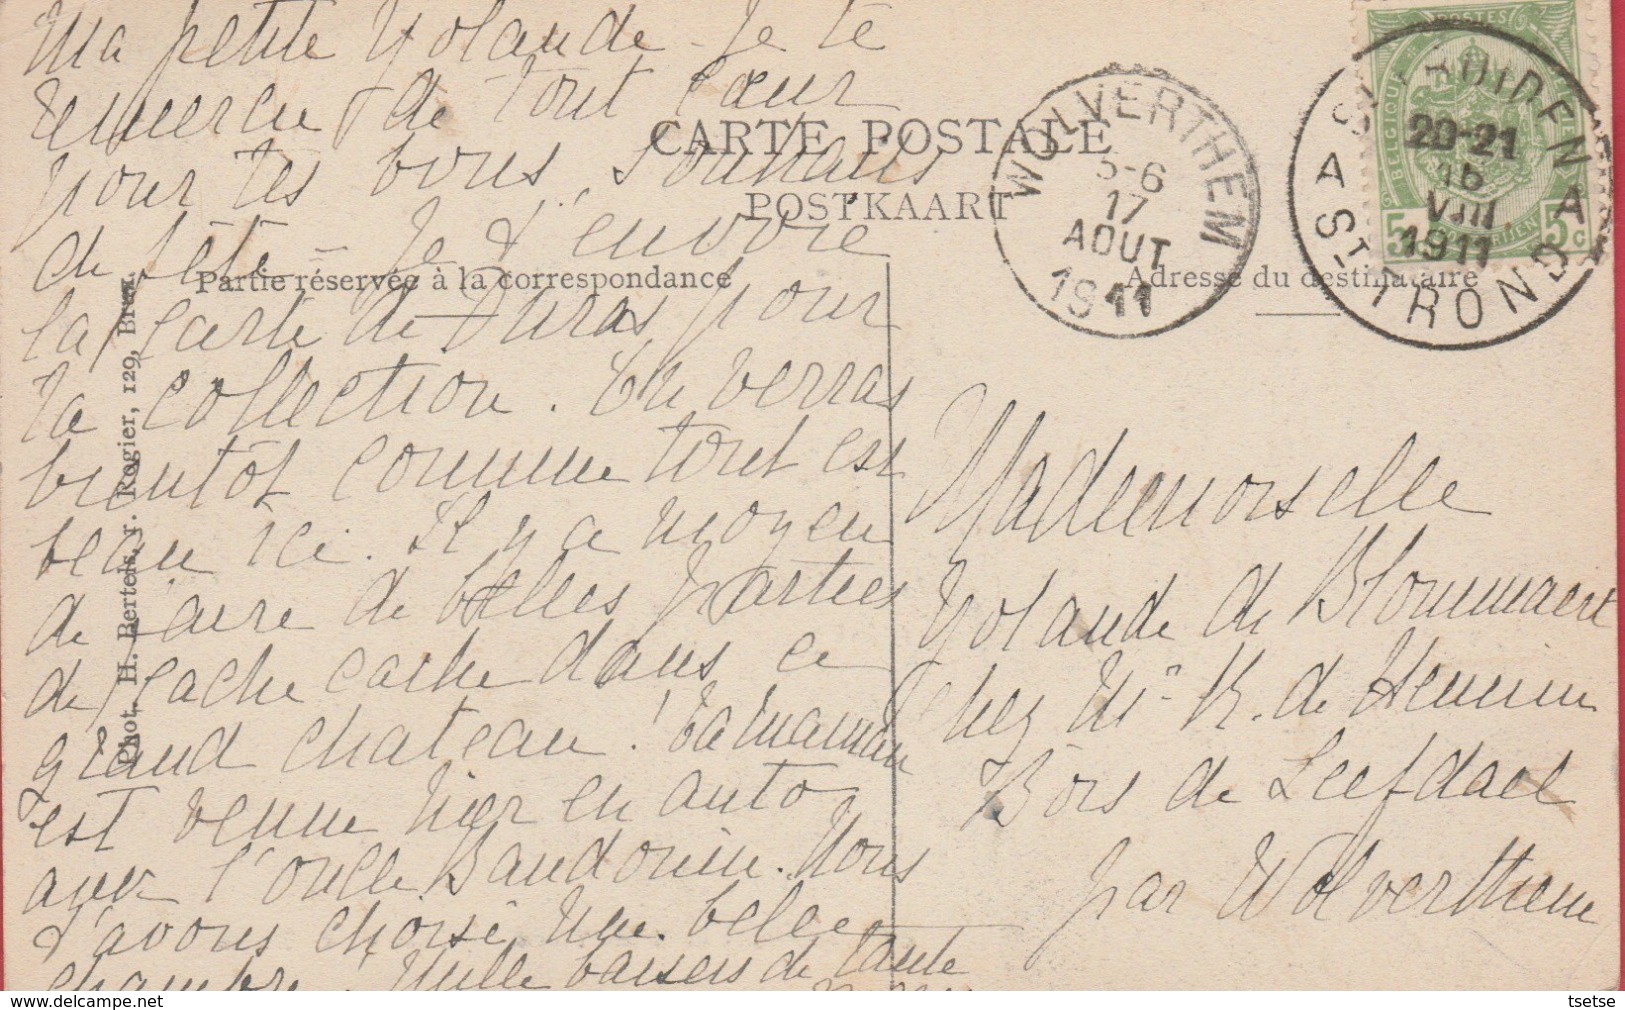 Ma petite Yolande - Je te
remercie de tout cœur
pour tes bons souhaits
de fête - Je t'envoie
la carte de Duras pour
ta collection. Tu verras
bientôt comme tout est
beau ici. Il y a moyen
de faire de belles parties
de cache cache dans ce
grand chateau! Ta maman
est venue hier en auto
avec l'oncle Baudouin. Nous
t'avons choisi une belle
chambre. Mille baisers de tante
CARTE POSTALE
POSTKAART
Partie réservée à la correspondance
Adresse du destinataire
Phot. H. Bertels, r. Rogier, 129, Brux.
WOLVERTHEM
5-6
17
AOUT
1911
POSTES
BELGIQUE
5c 5c
20-21
16
VIII
1911
A ST-TROND A
Mademoiselle
Yolande de Blommaert
chez Mr R. de Hennin
Bois de Leefdael
par Wolverthem
tsetse